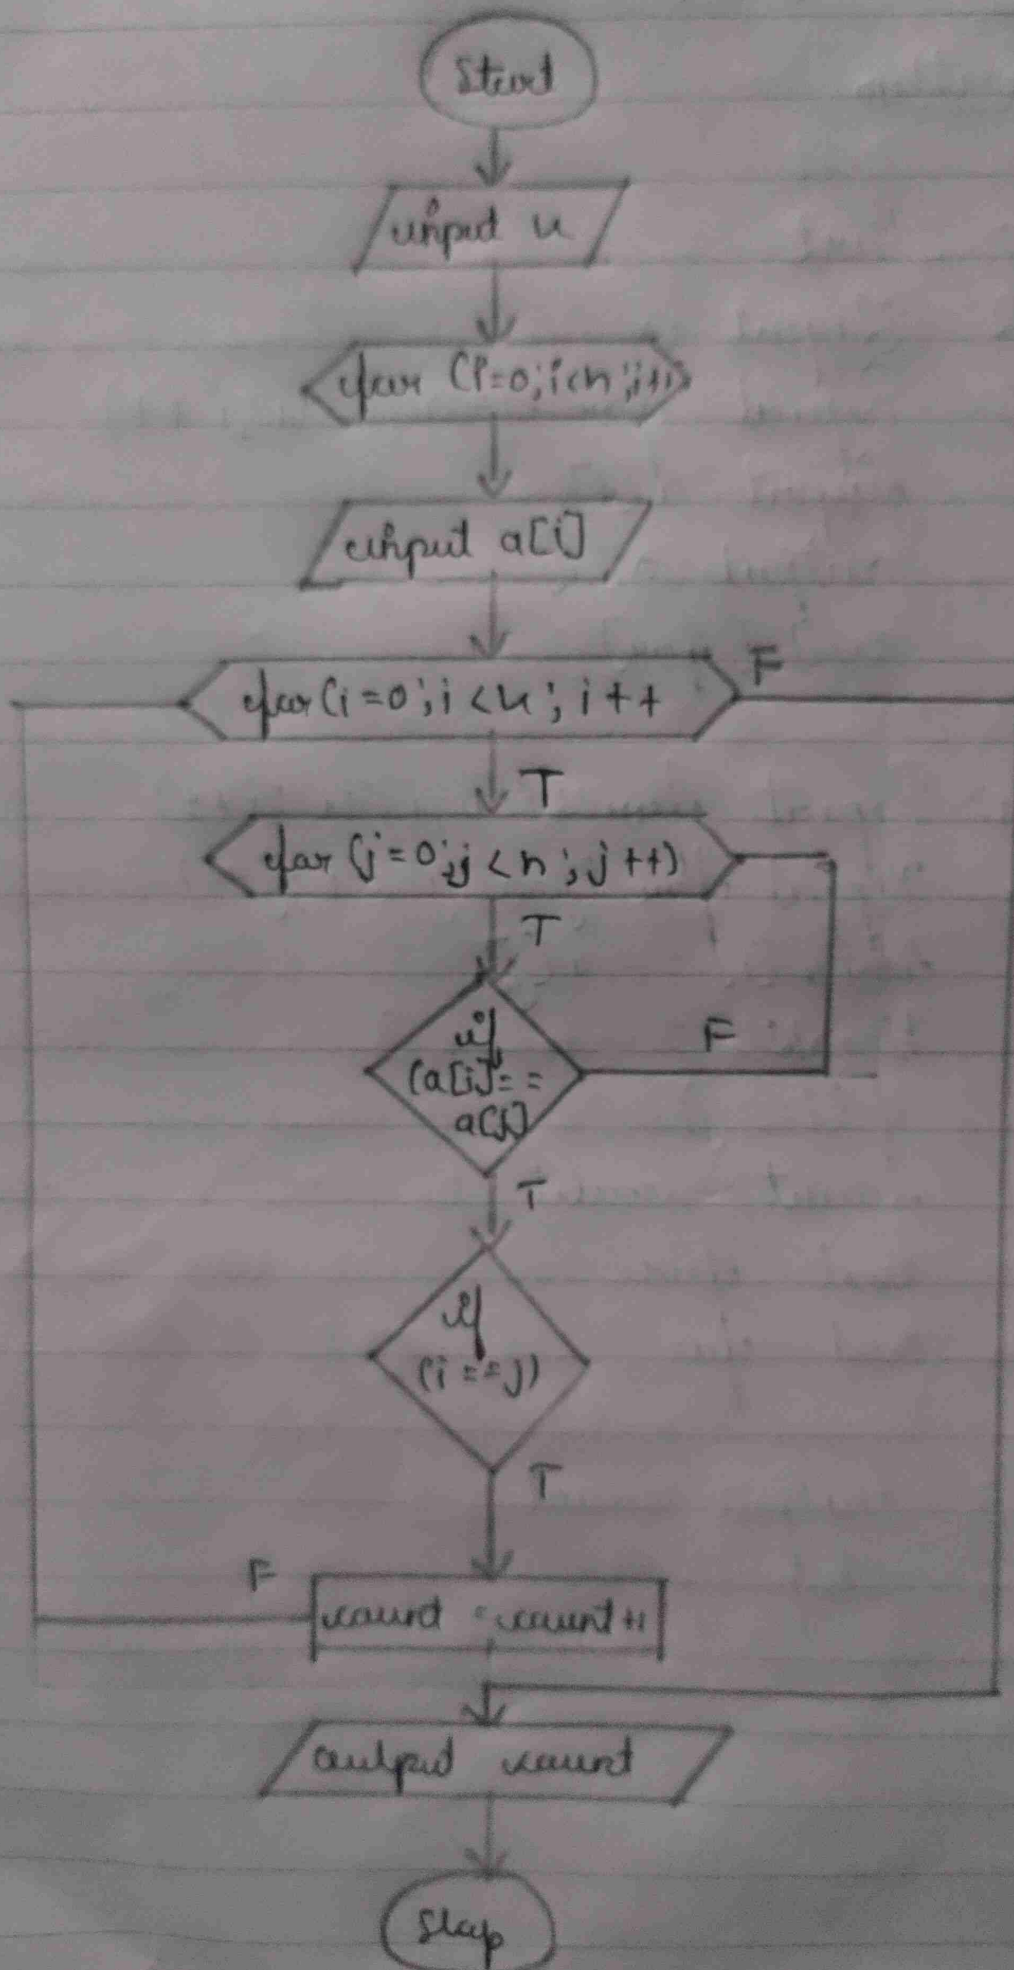 Start
input n
for (i=0; i<n; i++)
input a[i]
for (i=0; i<n; i++
F
T
for (j=0; j<n; j++)
T
if
(a[i]==
a[j]
F
T
if
(i==j)
T
F
count = count+1
output count
Stop